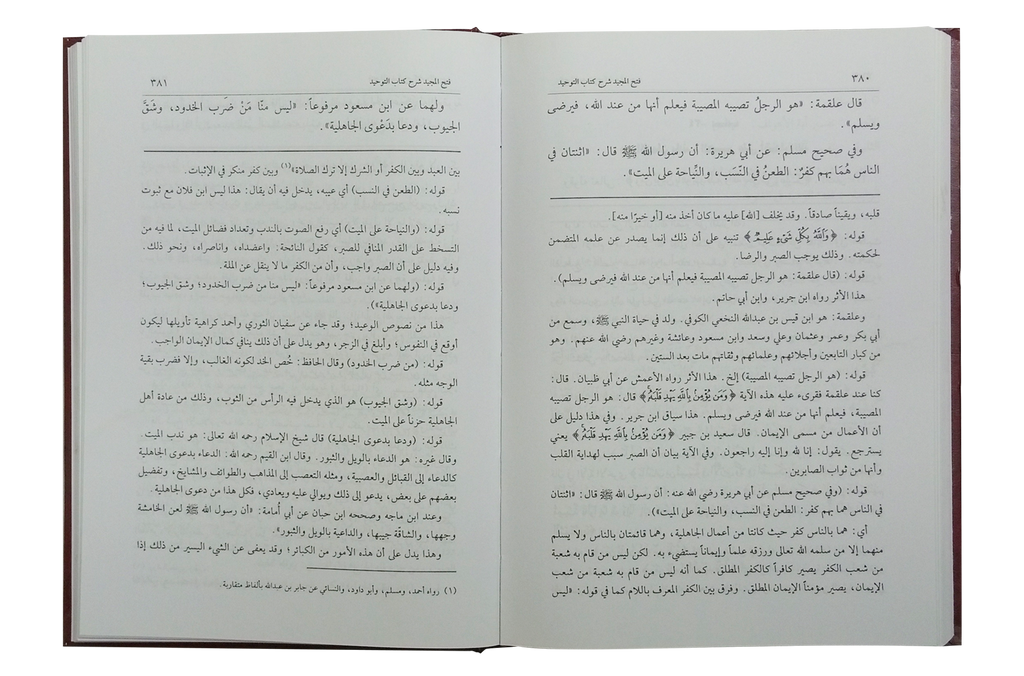 ٣٨٠
فتح المجيد شرح كتاب التوحيد
قال علقمة: «هو الرجلُ تصيبه المصيبة فيعلم أنها من عند الله، فيرضى
ويسلم».
وفي صحيح مسلم: عن أبي هريرة: أن رسول الله ﷺ قال: «اثنتان في
الناس هُمَا بهم كفرٌ: الطعنُ في النَّسَب، والنِّياحة على الميت».
قلبه، ويقيناً صادقاً. وقد يخلف [الله] عليه ما كان أخذ منه [أو خيرًا منه].
قوله: ﴿وَٱللَّهُ بِكُلِّ شَىْءٍ عَلِيمٌ﴾ تنبيه على أن ذلك إنما يصدر عن علمه المتضمن
لحكمته. وذلك يوجب الصبر والرضا.
قوله: (قال علقمة: هو الرجل تصيبه المصيبة فيعلم أنها من عند الله فيرضى ويسلم).
هذا الأثر رواه ابن جرير، وابن أبي حاتم.
وعلقمة: هو ابن قيس بن عبدالله النخعي الكوفي. ولد في حياة النبي ﷺ، وسمع من
أبي بكر وعمر وعثمان وعلي وسعد وابن مسعود وعائشة وغيرهم رضي الله عنهم. وهو
من كبار التابعين وأجلائهم وعلمائهم وثقاتهم مات بعد الستين.
قوله: (هو الرجل تصيبه المصيبة) إلخ. هذا الأثر رواه الأعمش عن أبي ظبيان. قال:
كنا عند علقمة فقرىء عليه هذه الآية ﴿وَمَن يُؤْمِنۢ بِٱللَّهِ يَهْدِ قَلْبَهُۥ﴾ قال: هو الرجل تصيبه
المصيبة، فيعلم أنها من عند الله فيرضى ويسلم. هذا سياق ابن جرير. وفي هذا دليل على
أن الأعمال من مسمى الإيمان. قال سعيد بن جبير ﴿وَمَن يُؤْمِنۢ بِٱللَّهِ يَهْدِ قَلْبَهُۥ﴾ يعني
يسترجع. يقول: إنا لله وإنا إليه راجعون. وفي الآية بيان أن الصبر سبب لهداية القلب
وأنها من ثواب الصابرين.
قوله: (وفي صحيح مسلم عن أبي هريرة رضي الله عنه: أن رسول الله ﷺ قال: «اثنتان
في الناس هما بهم كفر: الطعن في النسب، والنياحة على الميت»).
أي: هما بالناس كفر حيث كانتا من أعمال الجاهلية، وهما قائمتان بالناس ولا يسلم
منهما إلا من سلمه الله تعالى ورزقه علماً وإيماناً يستضيء به. لكن ليس من قام به شعبة
من شعب الكفر يصير كافراً كالكفر المطلق. كما أنه ليس من قام به شعبة من شعب
الإيمان، يصير مؤمناً الإيمان المطلق. وفرق بين الكفر المعرف باللام كما في قوله: «ليس
فتح المجيد شرح كتاب التوحيد
٣٨١
ولهما عن ابن مسعود مرفوعاً: «ليس منّا مَنْ ضَرب الخدود، وشَقَّ
الجيوب، ودعا بدَعْوى الجاهلية».
بين العبد وبين الكفر أو الشرك إلا ترك الصلاة»(١) وبين كفر منكر في الإثبات.
قوله: (الطعن في النسب) أي عيبه، يدخل فيه أن يقال: هذا ليس ابن فلان مع ثبوت
نسبه.
قوله: (والنياحة على الميت) أي رفع الصوت بالندب وتعداد فضائل الميت، لما فيه من
التسخط على القدر المنافي للصبر، كقول النائحة: واعضداه، واناصراه، ونحو ذلك.
وفيه دليل على أن الصبر واجب، وأن من الكفر ما لا ينقل عن الملة.
قوله: (ولهما عن ابن مسعود مرفوعاً: «ليس منا من ضرب الخدود؛ وشق الجيوب؛
ودعا بدعوى الجاهلية»).
هذا من نصوص الوعيد؛ وقد جاء عن سفيان الثوري وأحمد كراهية تأويلها ليكون
أوقع في النفوس؛ وأبلغ في الزجر، وهو يدل على أن ذلك ينافي كمال الإيمان الواجب.
قوله: (من ضرب الخدود) وقال الحافظ: خُص الخد لكونه الغالب، وإلا فضرب بقية
الوجه مثله.
قوله: (وشق الجيوب) هو الذي يدخل فيه الرأس من الثوب، وذلك من عادة أهل
الجاهلية حزناً على الميت.
قوله: (ودعا بدعوى الجاهلية) قال شيخ الإسلام رحمه الله تعالى: هو ندب الميت.
وقال غيره: هو الدعاء بالويل والثبور. وقال ابن القيم رحمه الله: الدعاء بدعوى الجاهلية
كالدعاء إلى القبائل والعصبية، ومثله التعصب إلى المذاهب والطوائف والمشايخ، وتفضيل
بعضهم على بعض، يدعو إلى ذلك ويوالي عليه ويعادي، فكل هذا من دعوى الجاهلية.
وعند ابن ماجه وصححه ابن حبان عن أبي أمامة: «أن رسول الله ﷺ لعن الخامشة
وجهها، والشاقّة جيبها، والداعية بالويل والثبور».
وهذا يدل على أن هذه الأمور من الكبائر؛ وقد يعفى عن الشيء اليسير من ذلك إذا
(١) رواه أحمد، ومسلم، وأبو داود، والنسائي عن جابر بن عبدالله بألفاظ متقاربة.